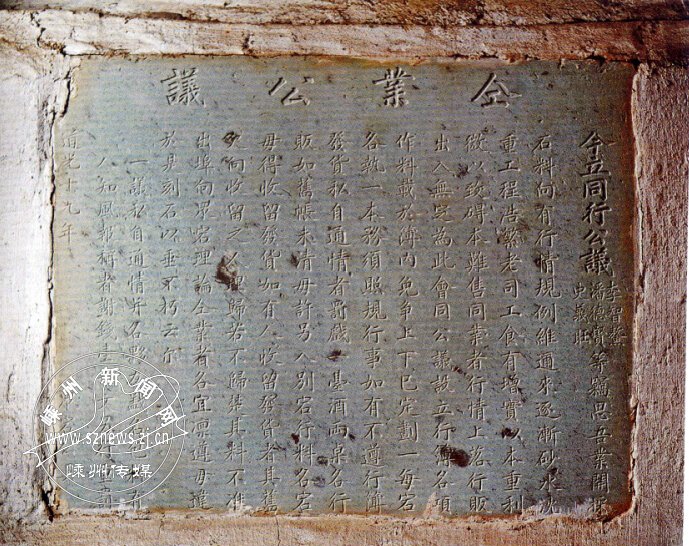 仝業公議
仝立同行公議李 潘德寶 史義旺等竊思吾業開採
石料向有行情規例維通來逐漸砂水洗
重工程浩繁老司工食有增實以本重利
微以致碍本難售同業者行情上落行販
出入無憑為此會同公議設立行簿各項
作料載於簿內免爭上下已定劃一每宕
各執一本務須照規行事如有不遵行簿
發貨私自通情者罰戲一臺酒兩桌各行
販如舊賬未清毋許另入別宕行料各宕
毋得收留發貨如有人收留發貨者其舊
欠向收留之人理歸若不歸楚其料不准
出埠向眾宕理論仝業者各宜凜遵毋違
於是刻石以垂不朽云爾
一議私自通情
人知風報稱者謝錢
道光十九年
嵊州新闻网
www.sznews.zj.cn
嵊州传媒